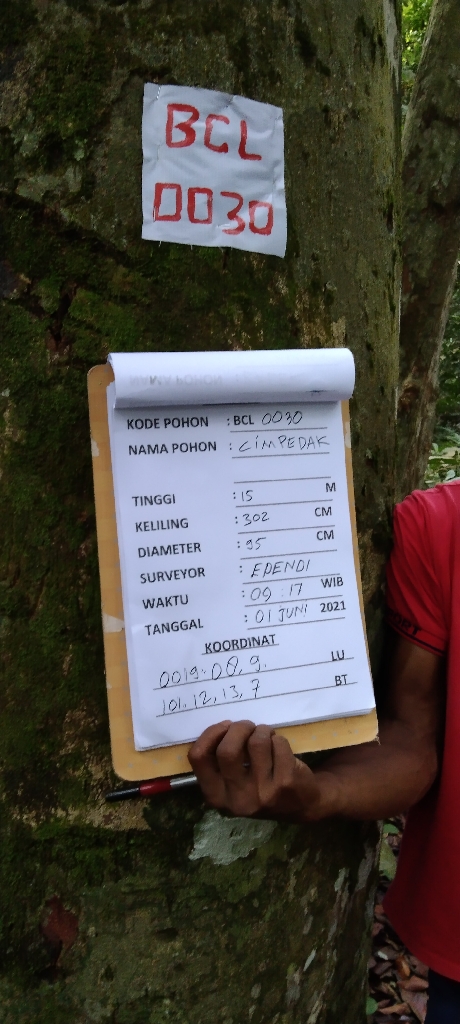 BCL
0030
KODE POHON : BCL 0030
NAMA POHON : CIMPEDAK
TINGGI : 15 M
KELILING : 302 CM
DIAMETER : 95 CM
SURVEYOR : EPENDI
WAKTU : 09 : 17 WIB
TANGGAL : 01 JUNI 2021
KOORDINAT
0019. 08, 9. LU
101. 12, 13, 7 BT